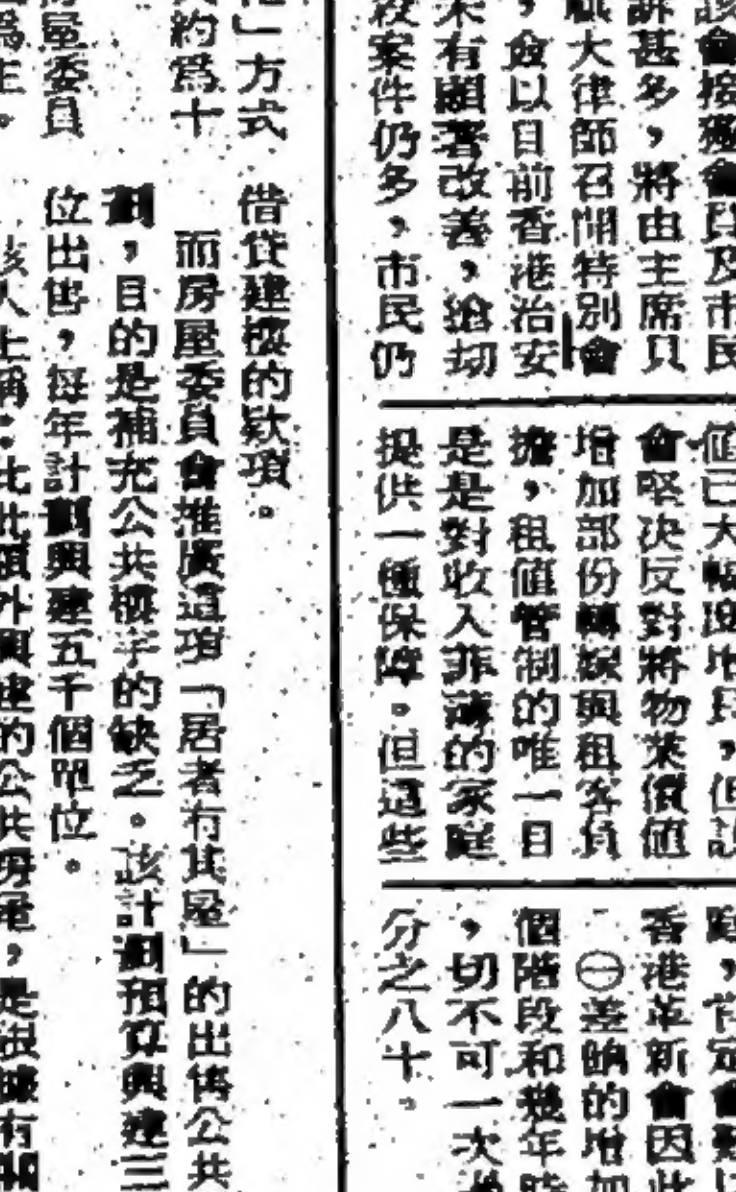 該會接獲會員及市民
訴甚多，將由主席貝
大律師召開特別會
，僉以目前香港治安
未有顯著改善，搶劫
殺案件仍多，市民仍
值已大幅度增長，但
會堅決反對將物業價值
增加部份轉嫁與租客負
擔，租值管制的唯一目
是是對收入菲薄的家庭
提供一種保障。但這些
庭，肯定會
香港革新會因此
㊀差餉的增加
個階段和幾年時
，切不可一次過
分之八十。
」方式
約爲十
房屋委員
爲主。
借貸建樓的欵項。
而房屋委員會推廣這項「居者有其屋」的出售公共
劃，目的是補充公共樓宇的缺乏。該計劃預算興建三
位出售，每年計劃興建五千個單位。
該人士稱：此額外興建的公共房屋，是根據有關